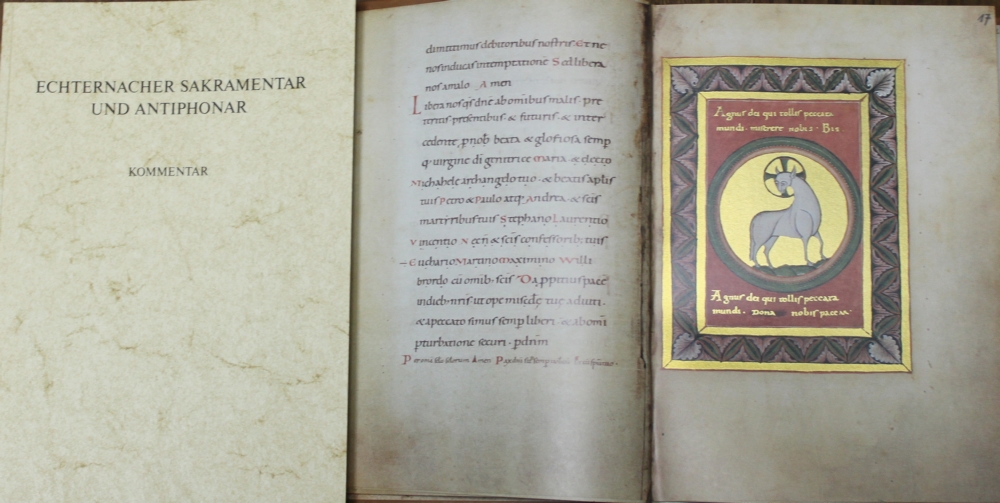 ECHTERNACHER SAKRAMENTAR
UND ANTIPHONAR
KOMMENTAR
dimittimus debitoribus nostris Et ne
nos inducas intemptatione Sed libera
nos amalo Amen
Libera nos qs dne ab omibus malis pre
teritis presentibus & futuris & inter
cedente p nob beata & gloriosa semp
q uirgine di genitrice Maria & electo
Michahele archangelo tuo & beatis aplis
tuis Petro & Paulo atq Andrea & scis
martyribus tuis Stephano Laurentio
Vincentio & scis confessorib tuis
Euchario Martino Maximino Willi
brordo cu omib scis Da ppitius pace
indieb nris ut ope tue adiuti
& apeccato simus semp liberi & abomi
pturbatione securi pdnm
17
Agnus dei qui tollis peccata
mundi miserere nobis Bis
Agnus dei qui tollis peccata
mundi Dona nobis pacem